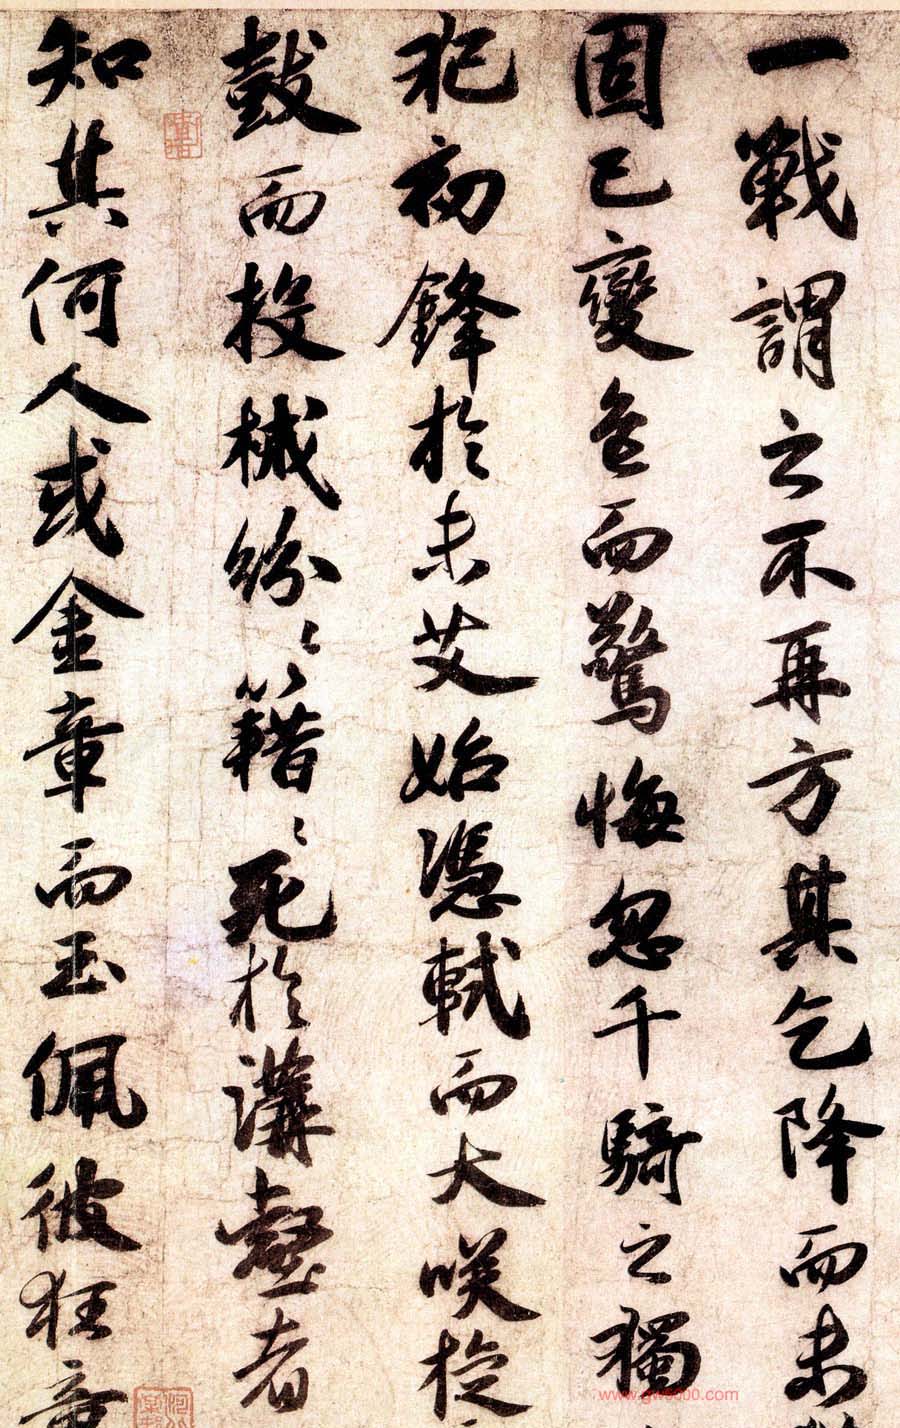 一戰謂之不再方其乞降而未
固已變色而驚悔忽千騎之獨
犯初鋒於未艾始憑軾而大咲旋
鼓而投械紛〻籍〻死於溝壑者
知其何人或金章而玉佩彼狂